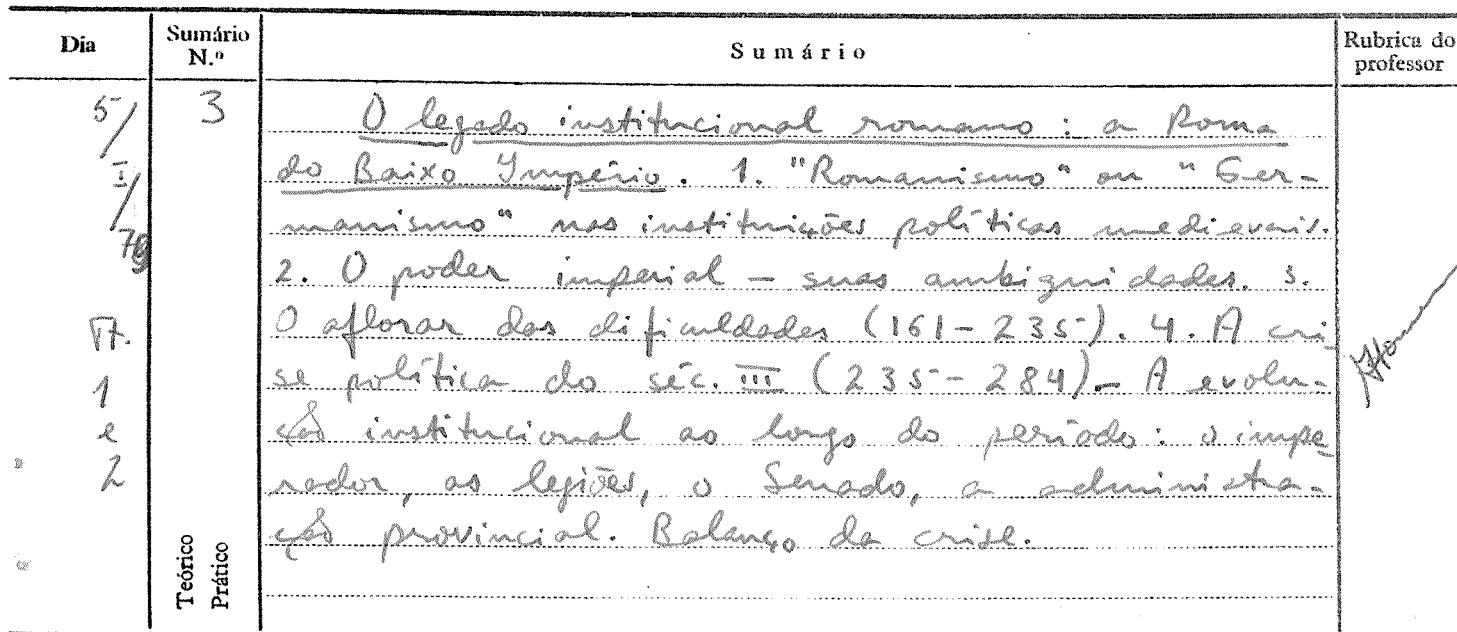 Dia
Sumário N.º
Sumário
Rubrica do professor
5/
I/
79
3
O legado institucional romano : a Roma
do Baixo Império. 1. "Romanismo" ou "Ger-
manismo" nas instituições políticas medievais.
2. O poder imperial – suas ambiguidades. 3.
O aflorar das dificuldades (161-235). 4. A cri
se política do séc. III (235-284) – A evolu-
ção institucional ao longo do período : o impe
rador, as legiões, o Senado, a administra-
ção provincial. Balanço da crise.
1
e
2
Teórico
Prático